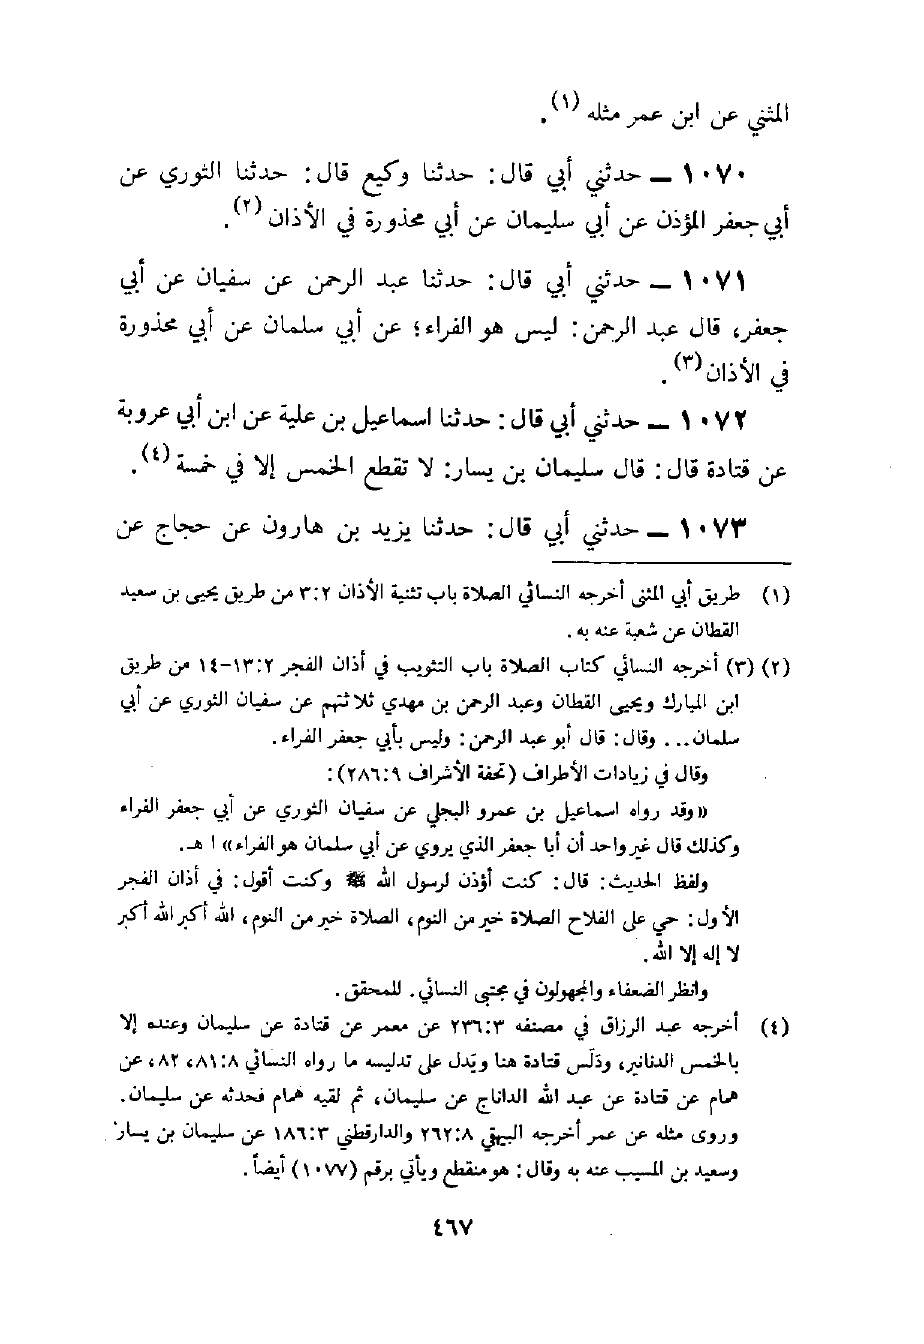 المثني عن ابن عمر مثله (١).
١٠٧٠ ــ حدثني أبي قال: حدثنا وكيع قال: حدثنا الثوري عن
أبي جعفر المؤذن عن أبي سليمان عن أبي محذورة في الأذان (٢).
١٠٧١ ــ حدثني أبي قال: حدثنا عبد الرحمن عن سفيان عن أبي
جعفر، قال عبد الرحمن: ليس هو الفراء؛ عن أبي سلمان عن أبي محذورة
في الأذان (٣).
١٠٧٢ ــ حدثني أبي قال: حدثنا اسماعيل بن علية عن ابن أبي عروبة
عن قتادة قال: قال سليمان بن يسار: لا تقطع الخمس إلا في خمسة (٤).
١٠٧٣ ــ حدثني أبي قال: حدثنا يزيد بن هارون عن حجاج عن
(١) طريق أبي المثنى أخرجه النسائي الصلاة باب تثنية الأذان ٣:٢ من طريق يحيى بن سعيد
القطان عن شعبة عنه به.
(٢) (٣) أخرجه النسائي كتاب الصلاة باب التثويب في أذان الفجر ١٣:٢-١٤ من طريق
ابن المبارك ويحيى القطان وعبد الرحمن بن مهدي ثلاثتهم عن سفيان الثوري عن أبي
سلمان... وقال: قال أبو عبد الرحمن: وليس بأبي جعفر الفراء.
وقال في زيادات الأطراف (تحفة الأشراف ٢٨٦:٩):
«وقد رواه اسماعيل بن عمرو البجلي عن سفيان الثوري عن أبي جعفر الفراء
وكذلك قال غير واحد أن أبا جعفر الذي يروي عن أبي سلمان هو الفراء» ا هـ.
ولفظ الحديث: قال: كنت أؤذن لرسول الله ﷺ وكنت أقول: في أذان الفجر
الأول: حي على الفلاح الصلاة خير من النوم، الصلاة خير من النوم، الله أكبر الله أكبر
لا إله إلا الله.
وانظر الضعفاء والمجهولون في مجتبى النسائي. للمحقق.
(٤) أخرجه عبد الرزاق في مصنفه ٢٣٦:٣ عن معمر عن قتادة عن سليمان وعنده إلا
بالخمس الدنانير، ودَلَّس قتادة هنا ويَدل على تدليسه ما رواه النسائي ٨١:٨، ٨٢، عن
همام عن قتادة عن عبد الله الداناج عن سليمان، ثم لقيه همام فحدثه عن سليمان.
وروى مثله عن عمر أخرجه البيهقي ٢٦٢:٨ والدارقطني ١٨٦:٣ عن سليمان بن يسار
وسعيد بن المسيب عنه به وقال: هو منقطع ويأتي برقم (١٠٧٧) أيضاً.
٤٦٧